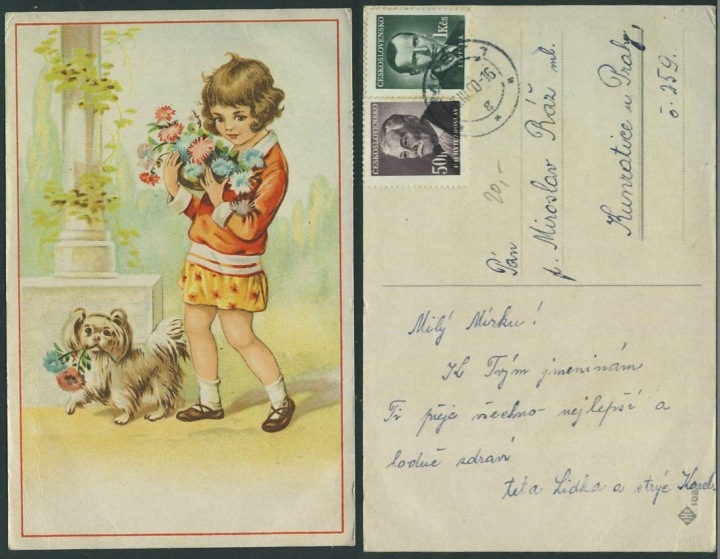 ČESKOSLOVENSKO
1 Kčs
ČESKOSLOVENSKO
50h
P. O. HVIEZDOSLAV
20,-
Pán
p. Miroslav Ráž ml.
Kunratice u Prahy,
č. 259.
Milý Mirku!
K Tvým jmeninám
Ti přeje všechno nejlepší a
hodně zdraví
teta Lidka a strýc Karel